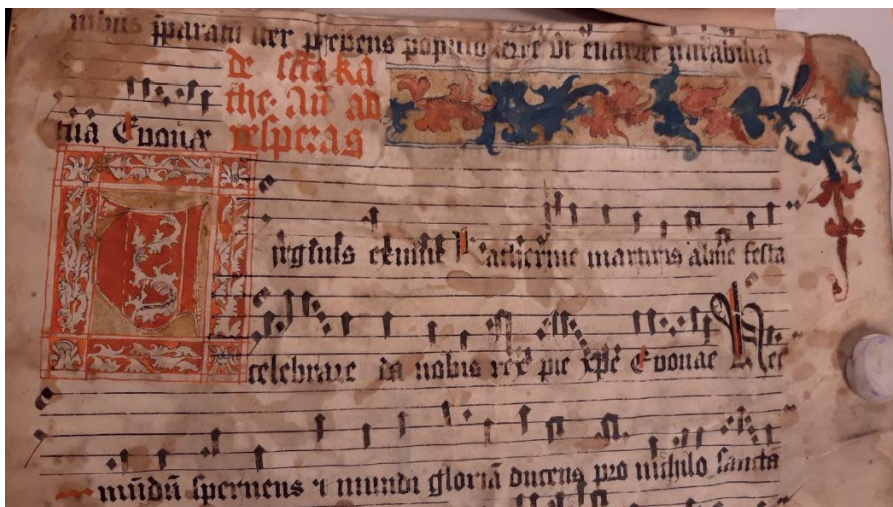 nibus p̄paratū iter prebens populo ut enarret mirabilia
de sc̄ta ka
the. Añ ad
vesperas
tua Euouae
irginis eximie Katherine martiris alme festa
celebrare da nobis rex pie xp̄e Euouae Nec
mūdū spernens ⁊ mundi gloriā ducens pro nichilo sancta